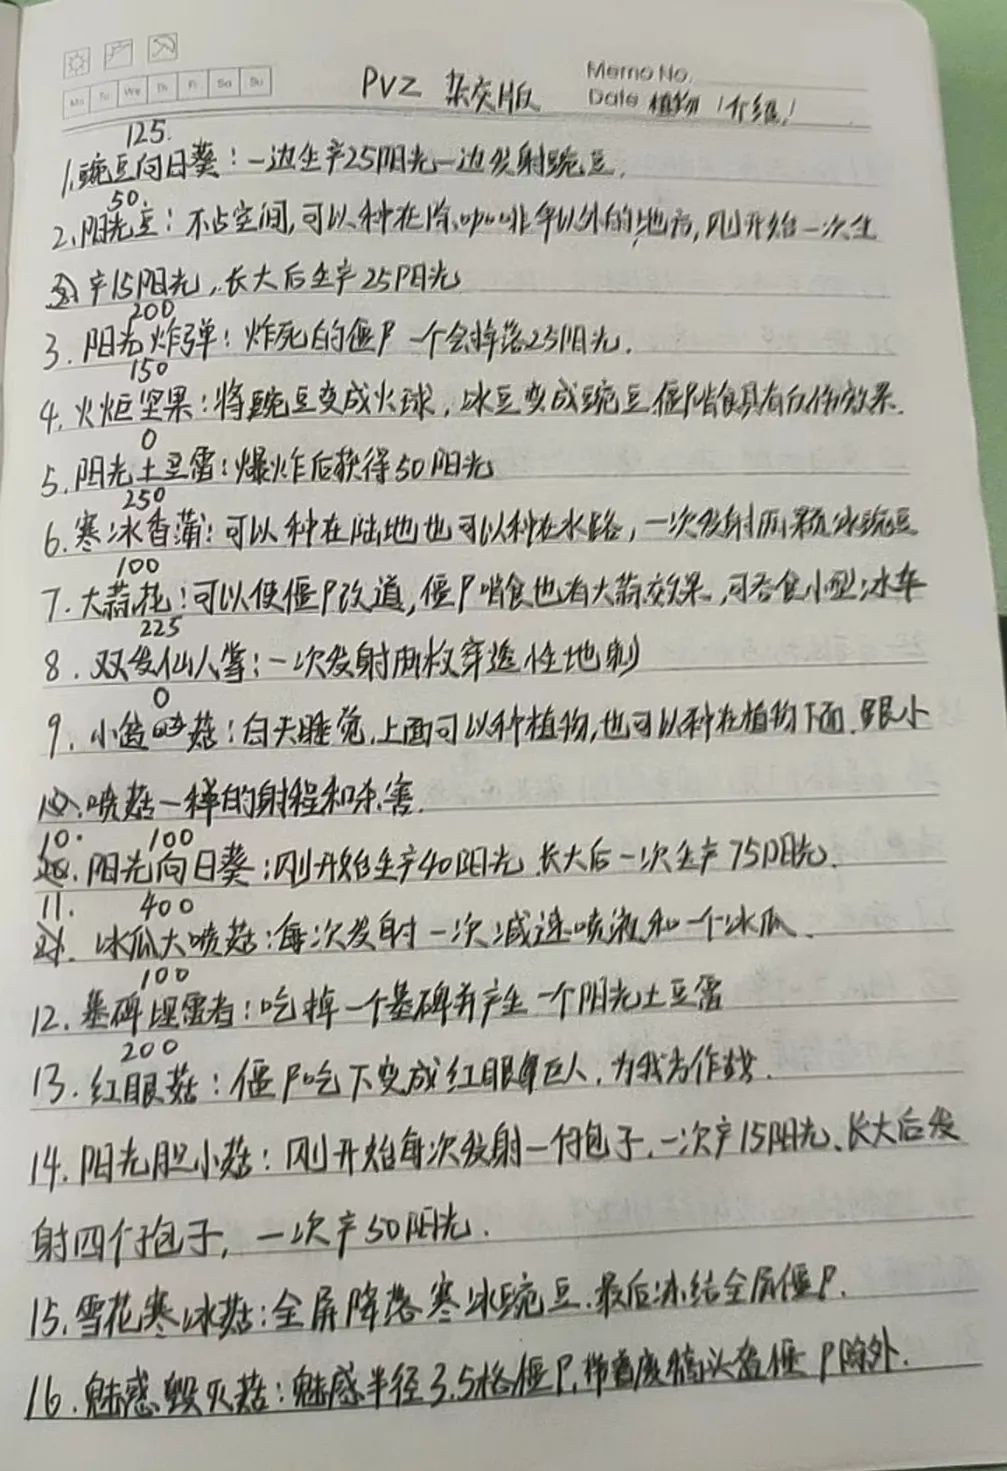 Mo Tu We Th Fr Sa Su
PVZ 杂交版
Memo No.
Date 植物 介绍!
125.
1.豌豆向日葵:一边生产25阳光一边发射豌豆.
50.
2.阳光豆:不占空间,可以种在除咖啡车以外的地方,刚开始一次生
产15阳光,长大后生产25阳光
200
3.阳光炸弹:炸死的僵尸一个会掉落25阳光.
150
4.火炬坚果:将豌豆变成火球,冰豆变成豌豆僵尸啃食具有白伤效果.
0
5.阳光土豆雷:爆炸后获得50阳光
250
6.寒冰香蒲:可以种在陆地也可以种在水路,一次发射两颗冰豌豆
100
7.大蒜花:可以使僵尸改道,僵尸啃食也有大蒜效果,可吞食小型冰车
225
8.双发仙人掌:一次发射两枚穿透性地刺
0
9.小盆菇:白天睡觉.上面可以种植物,也可以种在植物下面.跟小
喷菇一样的射程和杀害.
10. 100
阳光向日葵:刚开始生产40阳光.长大后一次生产75阳光.
11. 400
冰瓜大喷菇:每次发射一次减速喷液和一个冰瓜.
100
12.墓碑埋雷者:吃掉一个墓碑并产生一个阳光土豆雷
200
13.红眼菇:僵尸吃下变成红眼巨人,为我方作战.
14.阳光胆小菇:刚开始每次发射一个包子.一次产15阳光.长大后发
射四个孢子,一次产50阳光.
15.雪花寒冰菇:全屏降落寒冰豌豆.最后冻结全屏僵尸.
16.魅惑毁灭菇:魅惑半径3.5格僵尸,带着废稿头盔僵尸除外.